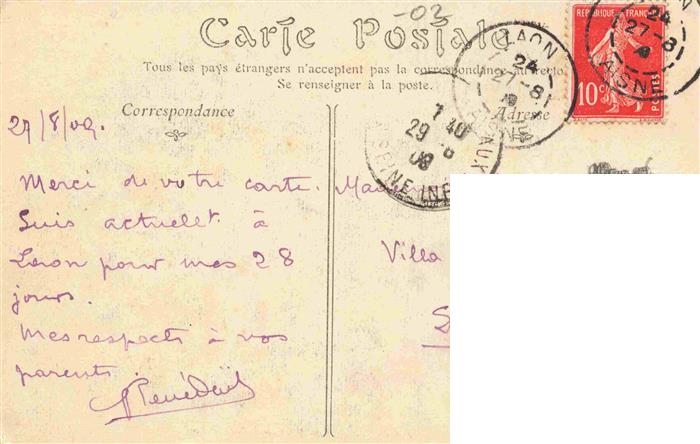 -02
Carte Postale
Tous les pays étrangers n'acceptent pas la correspondance au recto
Se renseigner à la poste.
Correspondance
Adresse
REPUBLIQUE FRANÇAISE
10c
POSTES
LAON
24
27-8
AISNE
24
27-8
AISNE
7 40
29 -8
09
SEINE INF
27/8/09.
Merci de votre carte.
Suis actuellt à
Laon pour mes 28
jours.
Mes respects à vos
parents.
Villa